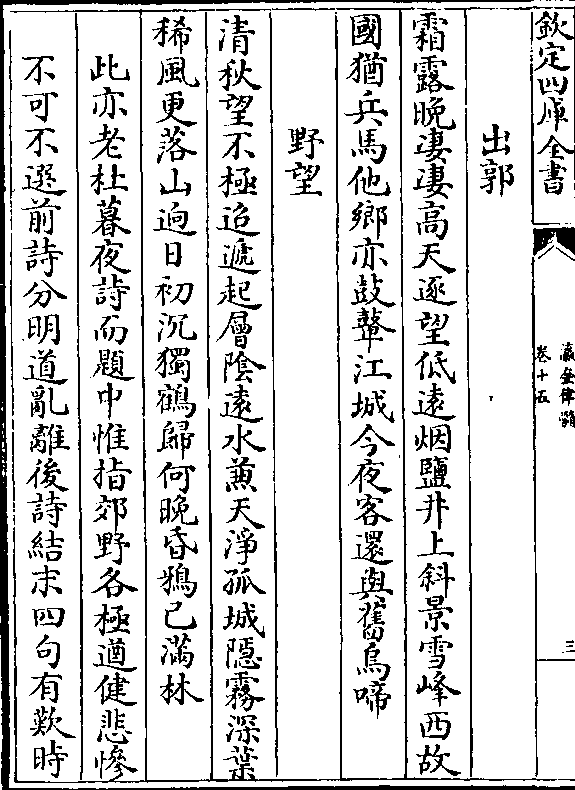 欽定四庫全書
瀛奎律髓
卷十五
三
出郭
霜露晚淒淒高天逐望低遠烟鹽井上斜景雪峰西故
國猶兵馬他鄉亦鼓鼙江城今夜客還與舊烏啼
野望
清秋望不極迢遞起層陰遠水蕪天淨孤城隱霧深葉
稀風更落山逈日初沉獨鶴歸何晚昏鴉已滿林
此亦老杜暮夜詩而題中惟指郊野各極遒健悲慘
不可不選前詩分明道亂離後詩結末四句有歎時